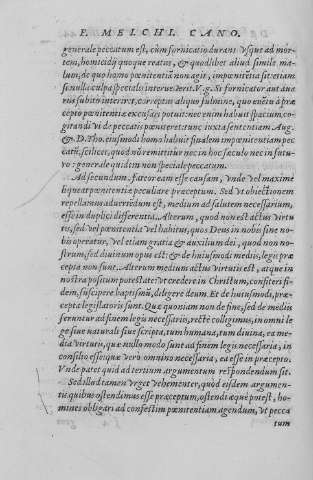 F. MELCHI. CANO.
generale peccatum est, cùm fornicatio durans vsque ad mor-
tem, homicidij quoque reatus, & quodlibet aliud simile ma-
lum, de quo homo pœnitentiã non agit, impœnitẽtia sit: etiam
si nulla culpa specialis interuenerit. V. g. Si fornicator aut aua
rus subito interiret, correptus aliquo fulmine, quo euẽtu à præ
cepto pœnitentiæ excusari potuit: nec enim habuit spacium, co-
gitandi vt de peccatis pœniteret: tunc iuxta sententiam Aug.
& D. Tho. eiusmodi homo habuit finalem impœnitentiam pec
catũ, scilicet, quod nõ remittitur nec in hoc sæculo nec in futu
ro: generale quidẽ: non speciale peccatum.
Ad secundum, fateor eam esse causam, vnde vel maximè
liqueat pœnitentiæ peculiare præceptum. Sed vt obiectionem
repellam: aduertendum est, medium ad salutem necessarium,
esse in duplici differentia. Alterum, quod non est actus virtu
tis, sed vel pœnitentia vel habitus, quos Deus in nobis sine no-
bis operatur, vel etiam gratia & auxilium dei, quod non no-
strum, sed diuinum opus est: & de huiusmodi medijs, legis præ
cepta non sunt. Alterum medium actus virtutis est, atque in
nostra positum potestate: vt credere in Christum, confiteri fi-
dem, suscipere baptismũ, diligere deum. Et de huiusmodi, præ-
cepta legislatoris sunt. Quæ quoniam non de fine, sed de medijs
feruntur ad finem legis necessarijs, rectè colligimus, in omni le
ge siue naturali siue scripta, tum humana, tum diuina, ea me-
dia virtutis, quæ nullo modo sunt ad finem legis necessaria, in
consilio esse: quæ vero omnino necessaria, ea esse in præcepto.
Vnde patet quid ad tertium argumentum respondendum sit.
Sed illud tamen vrget vehementer, quòd eisdem argumen-
tis quibus ostendimus esse præceptum, ostendi æquè potest, ho-
mines obligari ad confestim pœnitentiam agendum, vt pecca
tum